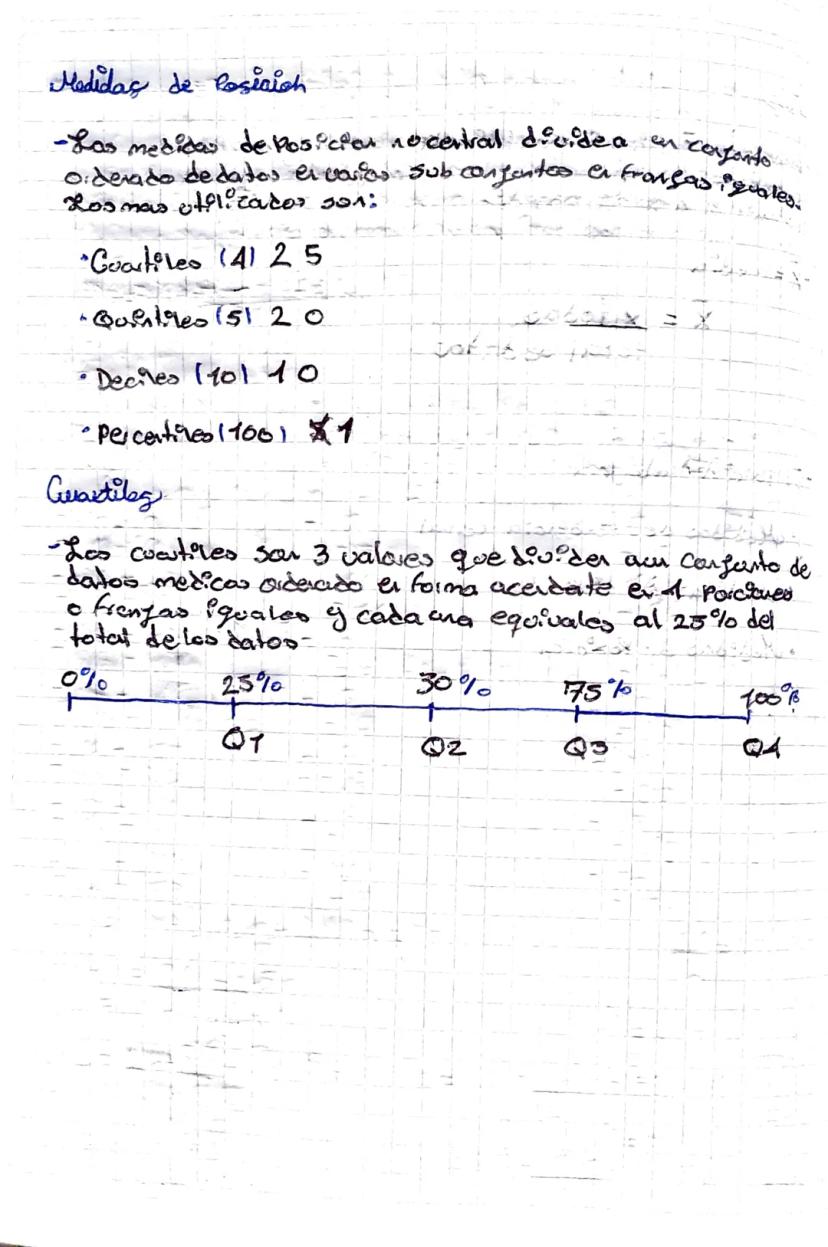 Medidas de Posición
-Las medidas de Posicion no central divide a un conjunto
ordenado de datos en varios subconjuntos en franjas iguales.
Los mas utilizados son:
•Cuartiles (4) 25
•Quintiles (5) 20
•Deciles (10) 10
•Percentiles (100) 1
Cuartiles
-Los cuartiles son 3 valores que dividen a un conjunto de
datos medicos ordenado en forma acendate en 4 porciones
o franjas iguales y cada una equivales al 25% del
total de los datos-
0% 25% 30% 75% 100%
Q1 Q2 Q3 Q4